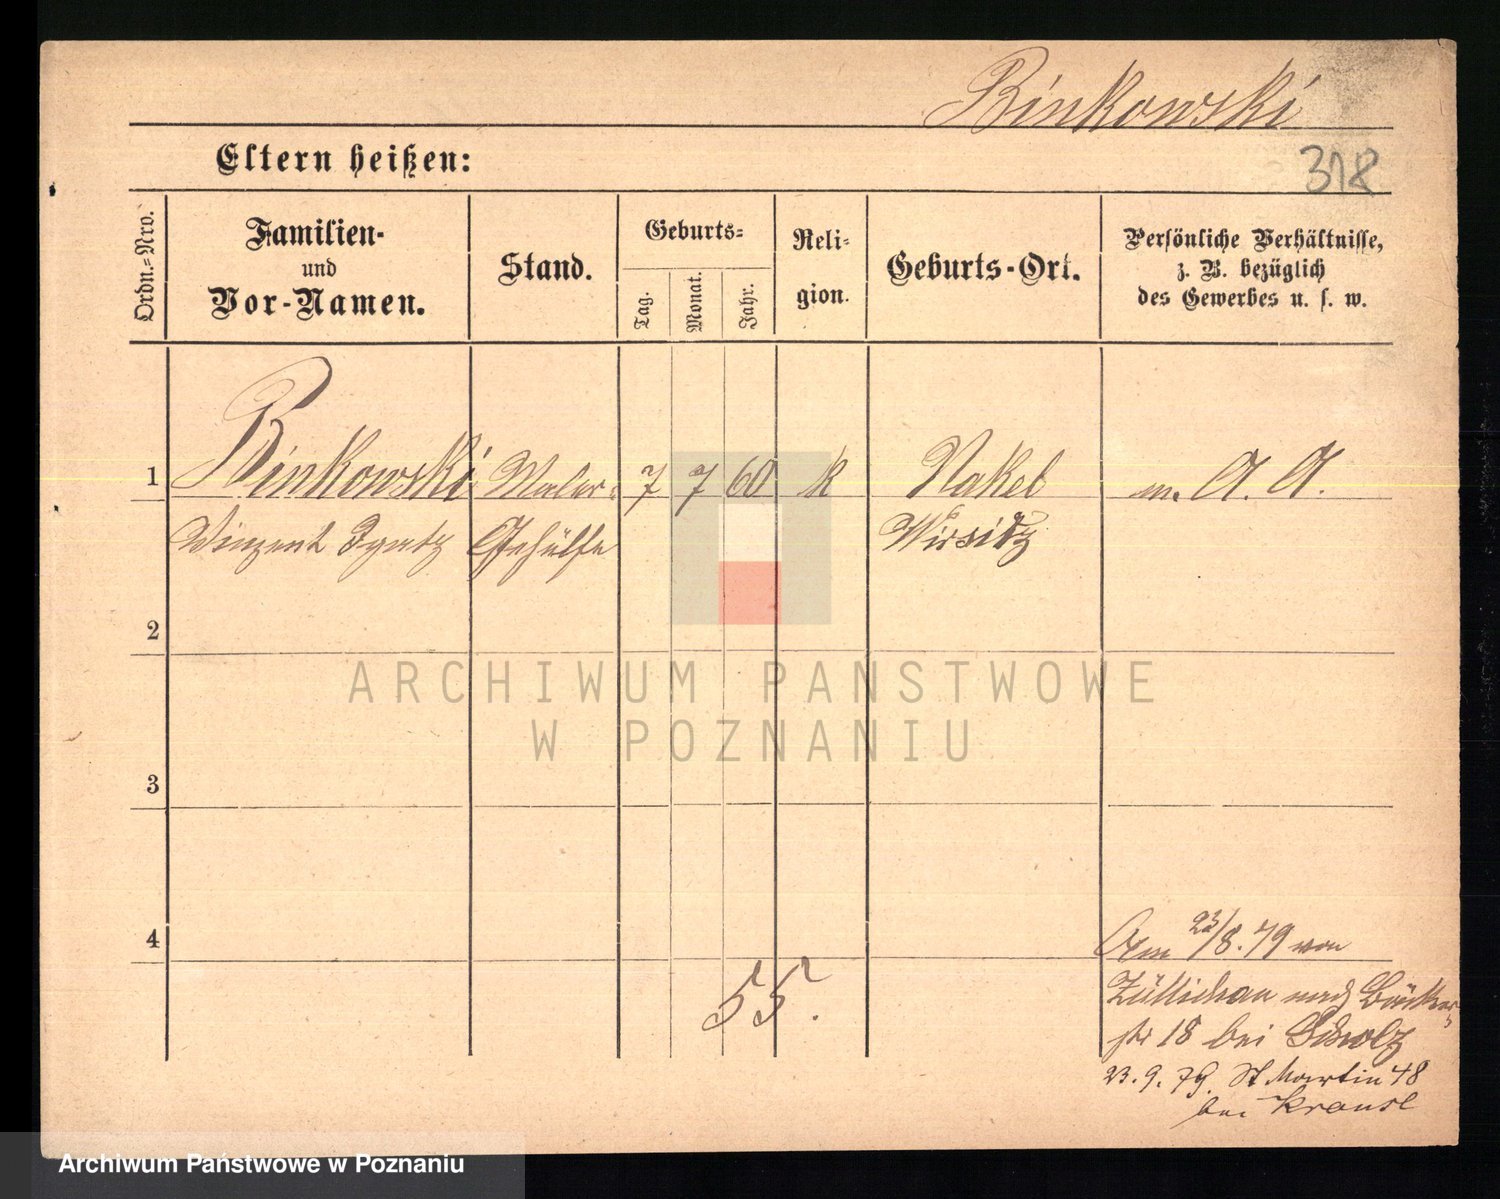 Binkowski
Eltern heißen:
318
Ordn.-Nro.
Familien-
und
Vor-Namen.
Stand.
Geburts-
Tag.
Monat.
Jahr.
Reli-
gion.
Geburts-Ort.
Persönliche Verhältnisse,
z. B. bezüglich
des Gewerbes u. s. w.
1 Binkowski Maler- 7 7 60 k Nakel m. A. A.
Vinzent Ignatz Gehülfe Wirsitz
2
ARCHIWUM PAŃSTWOWE
W POZNANIU
3
4
Am 23/8. 79 von
Züllichau nach Bäcker-
str 18 bei Scholz
55.
23. 9. 79. St Martin 48
bei Krause
Archiwum Państwowe w Poznaniu